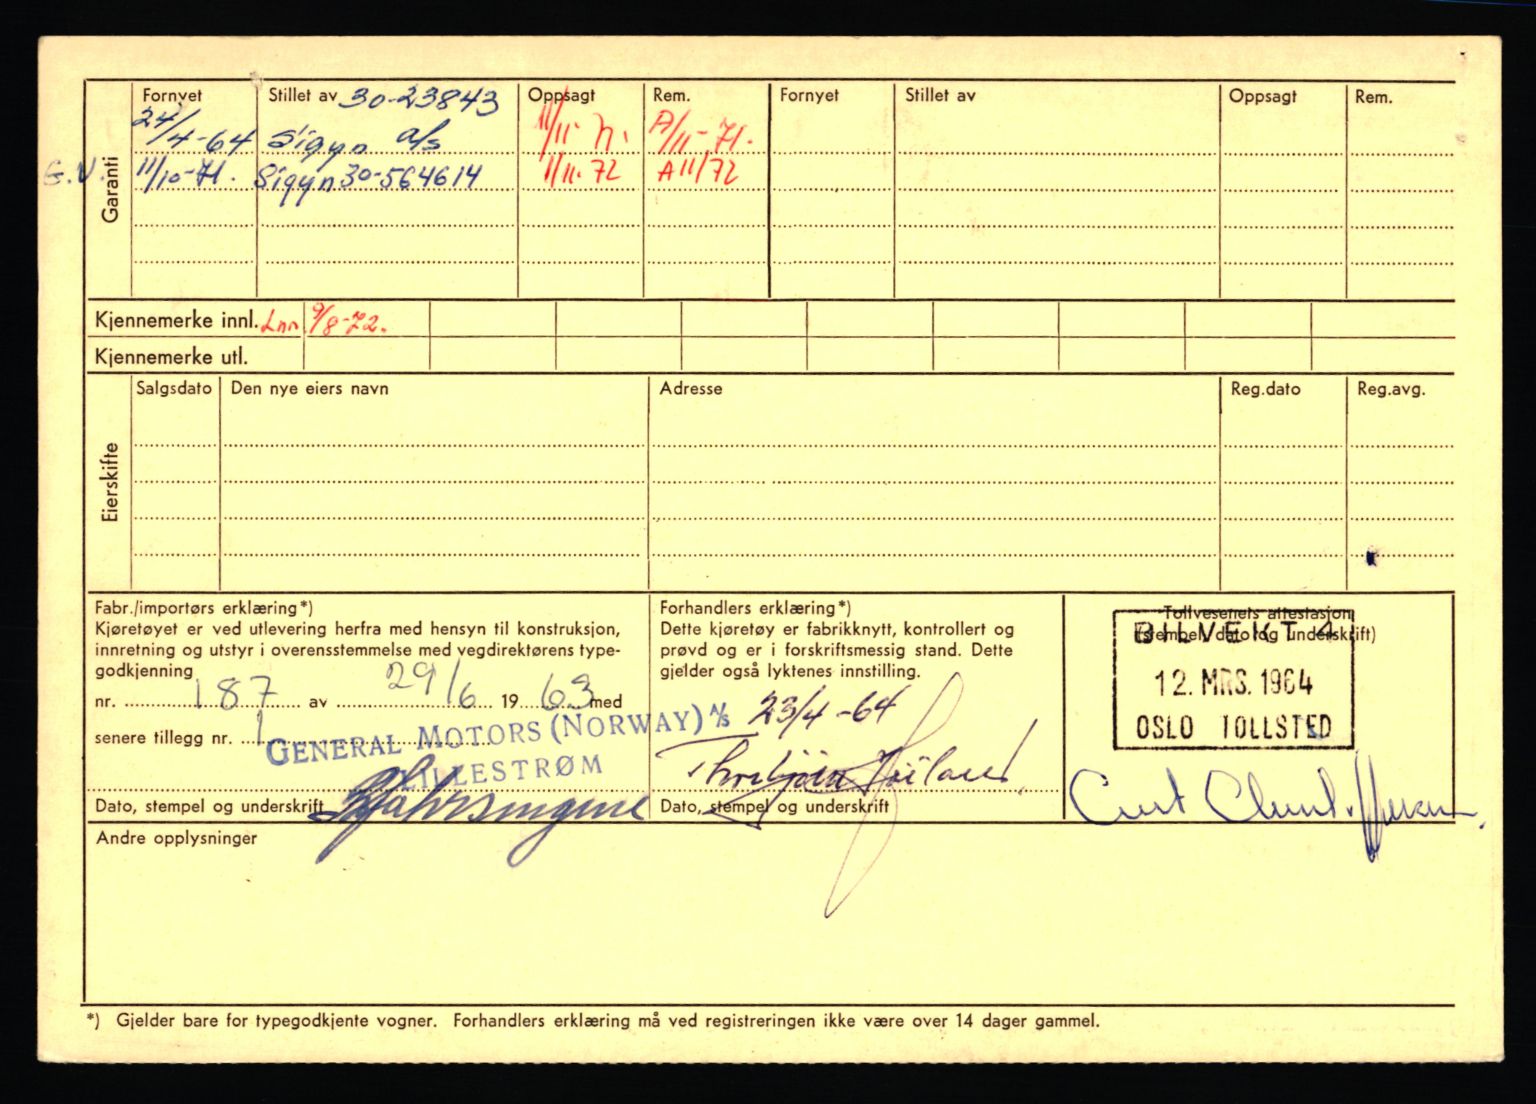 Garanti
Fornyet Stillet av 30-23843 Oppsagt Rem. Fornyet Stillet av Oppsagt Rem.
24/4-64 Sigyn a/s 11/11- 71. A/11-71.
G.V. 11/10-71. Sigyn 30-564614 1/11.72 A 11/72
Kjennemerke innl. Lnn 9/8-72.
Kjennemerke utl.
Eierskifte
Salgsdato Den nye eiers navn Adresse Reg.dato Reg.avg.
Fabr./importørs erklæring*)
Kjøretøyet er ved utlevering herfra med hensyn til konstruksjon,
innretning og utstyr i overensstemmelse med vegdirektørens type-
godkjenning
nr. 187 av 29/6 1963 med
senere tillegg nr. 1
GENERAL MOTORS (NORWAY) A/S
LILLESTRØM
Dato, stempel og underskrift
Forhandlers erklæring*)
Dette kjøretøy er fabrikknytt, kontrollert og
prøvd og er i forskriftsmessig stand. Dette
gjelder også lyktenes innstilling.
23/4-64
Dato, stempel og underskrift
Tollvesenets attestasjon
(stempel, dato og underskrift)
BILVEKT 4
12. MRS. 1964
OSLO TOLLSTED
Andre opplysninger
*) Gjelder bare for typegodkjente vogner. Forhandlers erklæring må ved registreringen ikke være over 14 dager gammel.